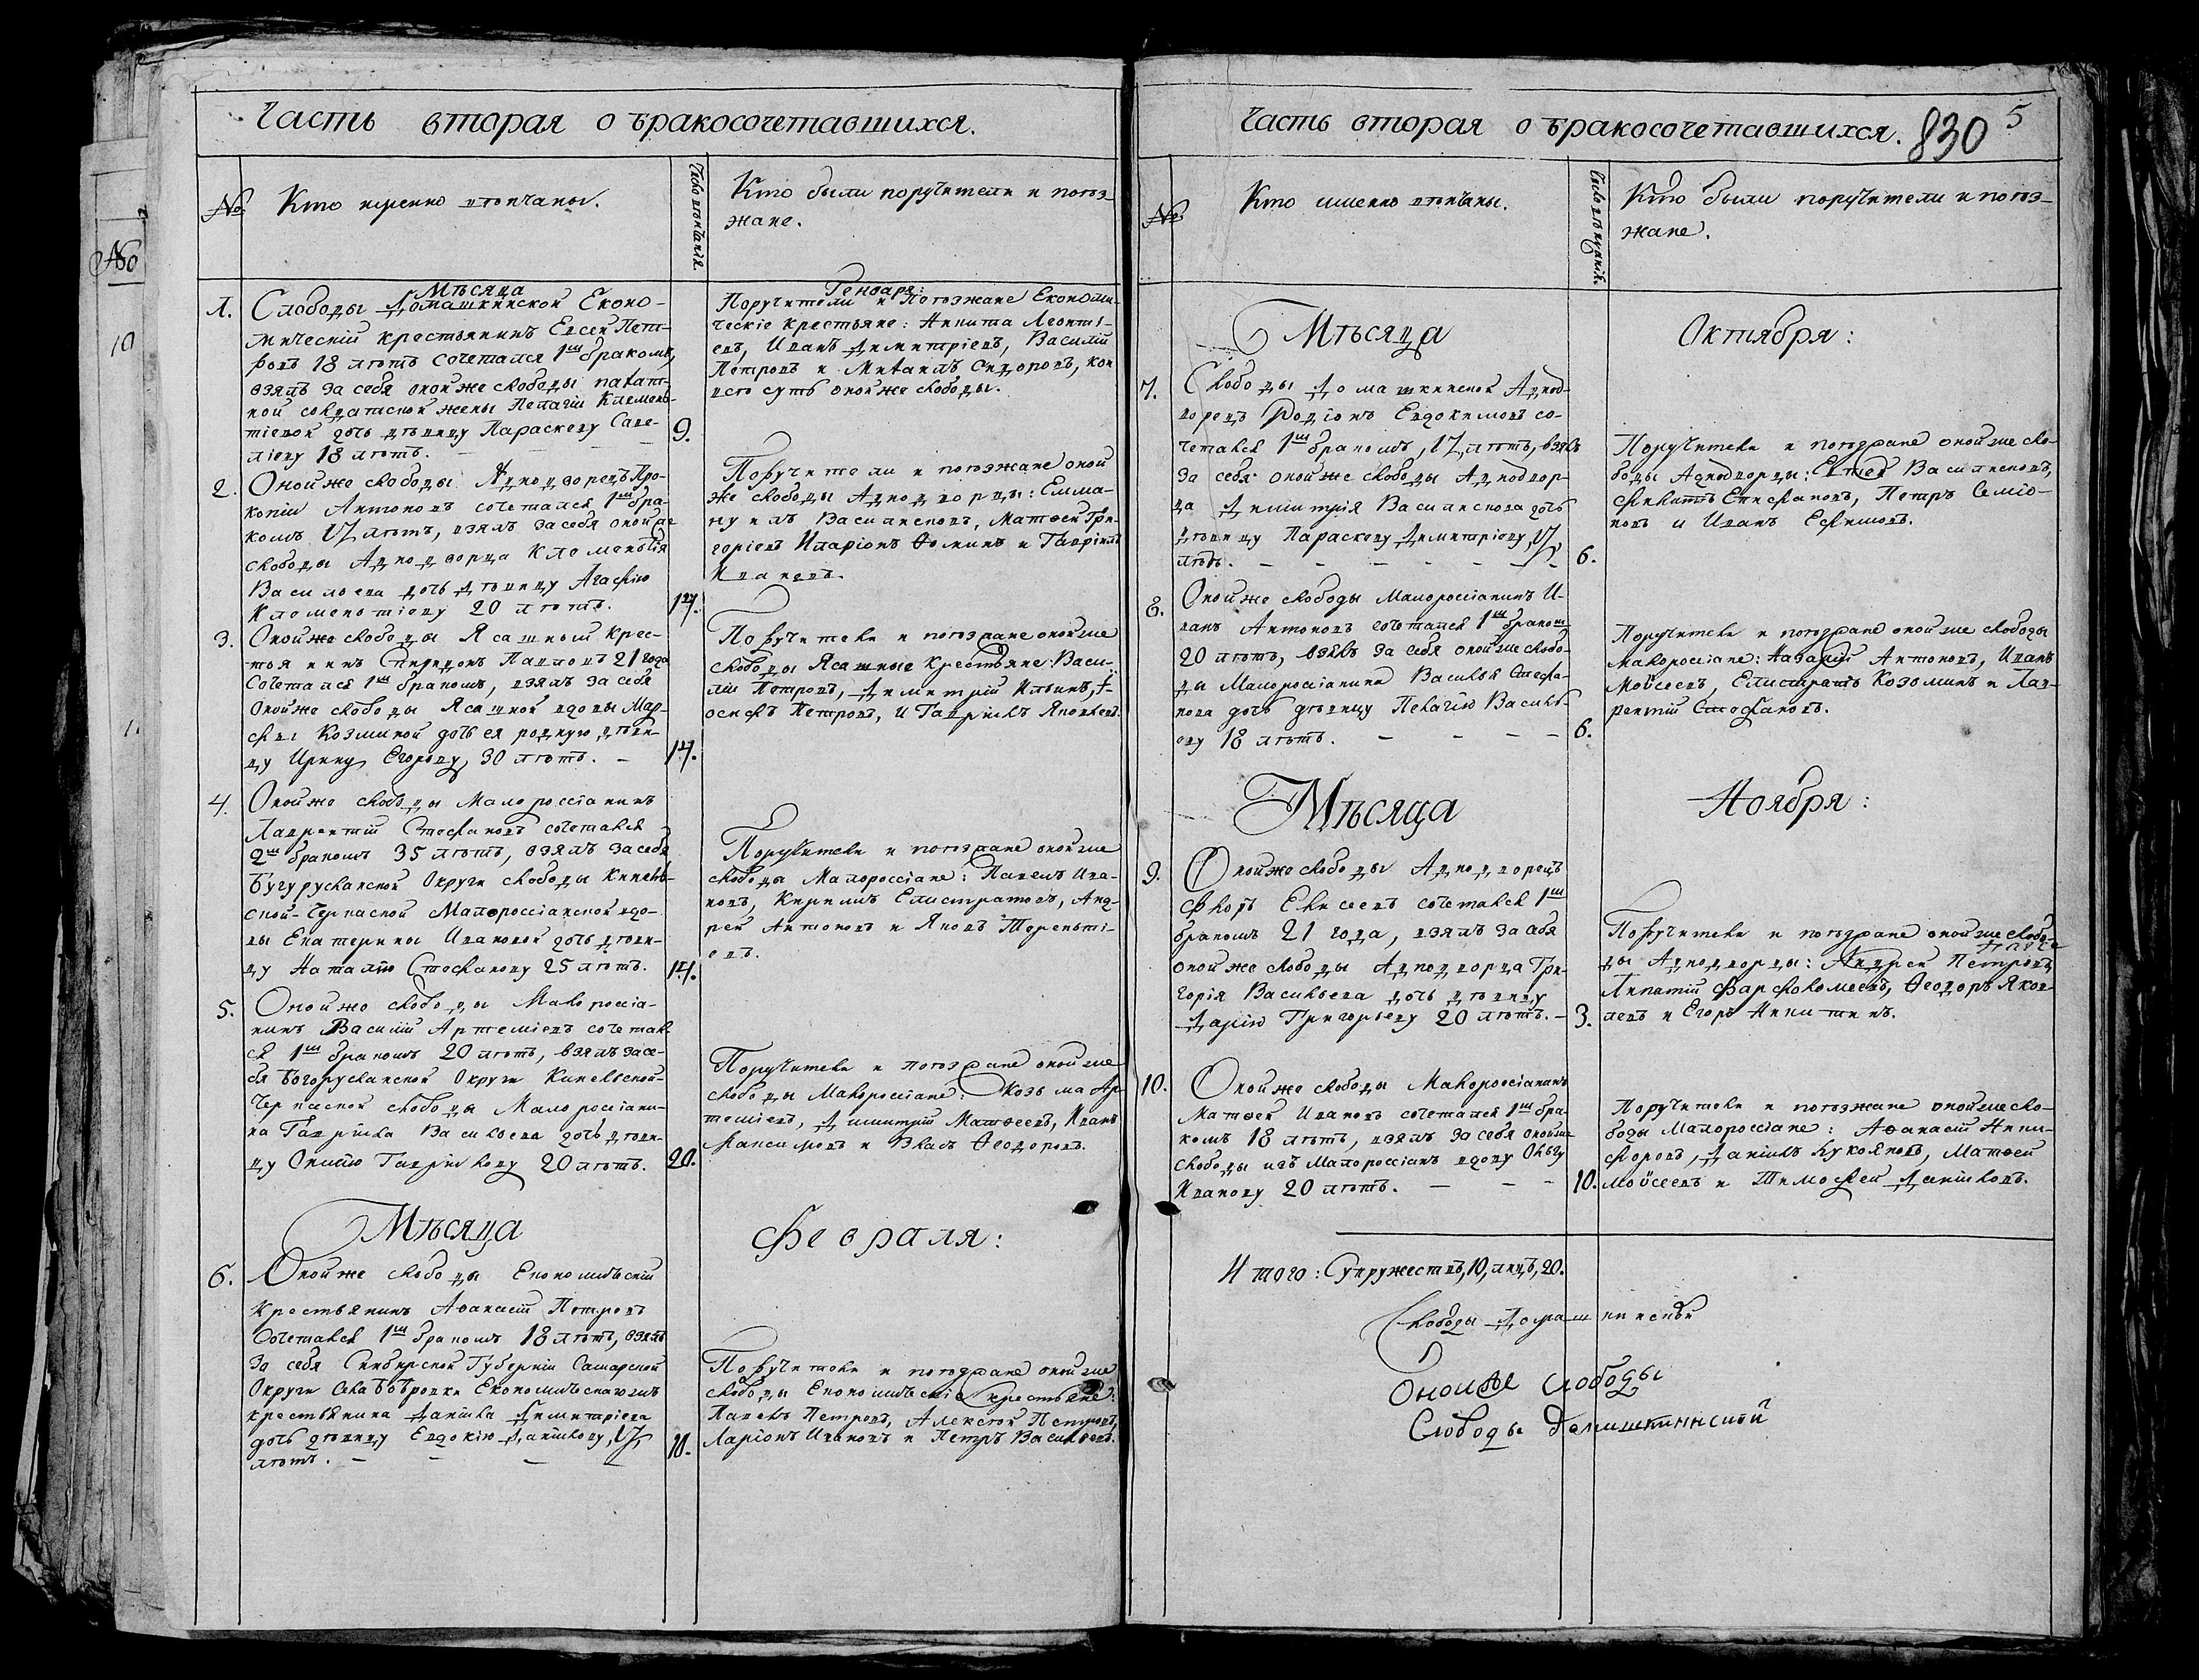 Часть вторая о бракосочетавшихся.
№
Кто именно вѣнчаны.
Число вѣнчанія.
Кто были поручители и поѣз-
жане.
Мѣсяца
Генваря:
1.
Слободы Домашкинской Еконо-
мическій крестьянинъ Евсей Пет-
ровъ 18 лѣтъ сочетался 1мъ бракомъ,
взялъ за себя оной же слободы
ной солдатской жены Пелагіи Клемень-
тіевой дочь дѣвицу Параскеву Саве-
ліеву 18 лѣтъ.
9.
Поручители и Поѣзжане Економи-
ческіе крестьяне: Никита Леонті-
евъ, Иванъ Димитріевъ, Василій
Петровъ и Михаилъ Сидоровъ, кои
всѣ суть оной же слободы.
2.
Оной же слободы Аднодворецъ Про-
копій Антоновъ сочетался 1мъ бра-
комъ 17 лѣтъ, взялъ за себя оной же
слободы Аднодворца Клементія
Васильева дочь дѣвицу Агафію
Клеменьтіеву 20 лѣтъ.
14.
Поручители и поѣзжане оной
же слободы Аднодворцы: Емма-
нуилъ Василисковъ, Матѳей Гри-
горіевъ Иларіонъ Ѳоминъ и Гавріилъ
Ивановъ.
3.
Оной же слободы Ясашный крес-
тьянинъ Спиридонъ Павловъ 21 года
Сочетался 1мъ бракомъ, взялъ за себя
Оной же слободы Ясашной вдовы Мар-
фы Козминой дочь ея родную дѣви-
цу Ирину Егорову 30 лѣтъ.
14.
Поручители и поѣзжане оной же
слободы Ясашные крестьяне: Васи-
лій Петровъ, Димитрій Ильинъ, І-
осифъ Петровъ, и Гавріилъ Яковлевъ.
4.
Оной же слободы Малороссіанинъ
Лаврентій Стефановъ сочетался
2мъ бракомъ 35 лѣтъ, взялъ за себя
Бугурусланской Округи слободы Кинель-
ской-Черкаской Малороссіанской вдо-
вы Екатерины Ивановой дочь дѣви-
цу Наталію Стефанову 25 лѣтъ.
14.
Поручители и поѣзжане оной же
слободы Малороссіане: Павелъ Ива-
новъ, Кирилъ Елистратовъ, Анд-
рей Антоновъ и Яковъ Тереньті-
евъ.
5.
Оной же слободы Малороссіа-
нинъ Василій Артеміевъ сочетал-
ся 1мъ бракомъ 20 лѣтъ, взялъ за се-
бя Богорусланской Округи Кинельской-
Черкаской слободы Малороссіани-
на Гавріила Васильева дочь дѣви-
цу Гавріилову 20 лѣтъ.
20.
Поручители и поѣзжане оной же
слободы Малороссіане: Козьма Ар-
теміевъ, Димитрій Матѳеевъ, Иванъ
Максимовъ и Власъ Ѳеодоровъ.
Мѣсяца
Февраля:
6.
Оной же слободы Економическій
крестьянинъ Аѳанасій Петровъ
Сочетался 1мъ бракомъ 18 лѣтъ, взялъ
За себя Симбирской Губерніи Самарской
Округи Села Бобровки
крестьянина Даніила Димитріева
дочь дѣвицу Евдокію Даніилову, 17
лѣтъ.
10.
Поручители и поѣзжане оной же
слободы Економическіе крестьяне:
Павелъ Петровъ, Алексѣй Петровъ,
Ларіонъ Ивановъ и Петръ Васильевъ.
Часть вторая о бракосочетавшихся. 830 5
№
Кто именно вѣнчаны.
Кто были поручители и поѣз-
жане.
Мѣсяца
Октября:
7.
Слободы Домашкинской Аднод-
ворецъ Родіонъ Евдокимовъ со-
четался 1мъ бракомъ, 17 лѣтъ, взялъ
За себя оной же слободы Аднодвор-
ца Димитрія Василискова дочь
дѣвицу Параскеву Димитріеву, 17,
лѣтъ.
6.
Поручители и поѣзжане оной же сло-
боды Аднодворцы: Василисковъ,
Епифановъ, Петръ Семіо-
новъ и Иванъ Ефимовъ.
8.
Оной же слободы Малороссіанинъ И-
ванъ Антоновъ сочетался 1мъ бракомъ
20 лѣтъ, взялъ за себя оной же слобо-
ды Малороссіанина Василья Стефа-
нова дочь дѣвицу Пелагію Василь-
еву 18 лѣтъ.
6.
Поручители и поѣзжане оной же слободы
Малороссіане: Назарій Антоновъ, Иванъ
Мойсеевъ, Елистратъ Козминъ и Лав-
рентій Стефановъ.
Мѣсяца
Ноября:
9.
Оной же слободы Аднодворецъ
Флоръ Елисеевъ сочетался 1мъ
бракомъ 21 года, взялъ за себя
оной же слободы Аднодворца Гри-
горія Васильева дочь дѣвицу
Дарію Григорьеву 20 лѣтъ.
3.
Поручители и поѣзжане оной же слобо-
ды Аднодворцы: Андрей Петровъ,
Ипатій Варфоломеевъ, Ѳеодоръ Яков-
левъ и Егоръ Никитинъ.
10.
Оной же слободы Малороссіанинъ
Матѳей Ивановъ сочетался 1мъ бра-
комъ 18 лѣтъ, взялъ за себя оной же
слободы изъ Малороссіанъ вдову Ольгу
Иванову 20 лѣтъ.
10.
Поручители и поѣзжане оной же сло-
боды Малороссіане: Аѳанасій Ники-
форовъ, Даніилъ Лукояновъ, Матѳей
Мойсеевъ и Тимофей Даніиловъ.
Итого: Супружествъ, 10, лицъ, 20.
Слободы Домашкинской
Оной же слободы
Слободы Домашкинской